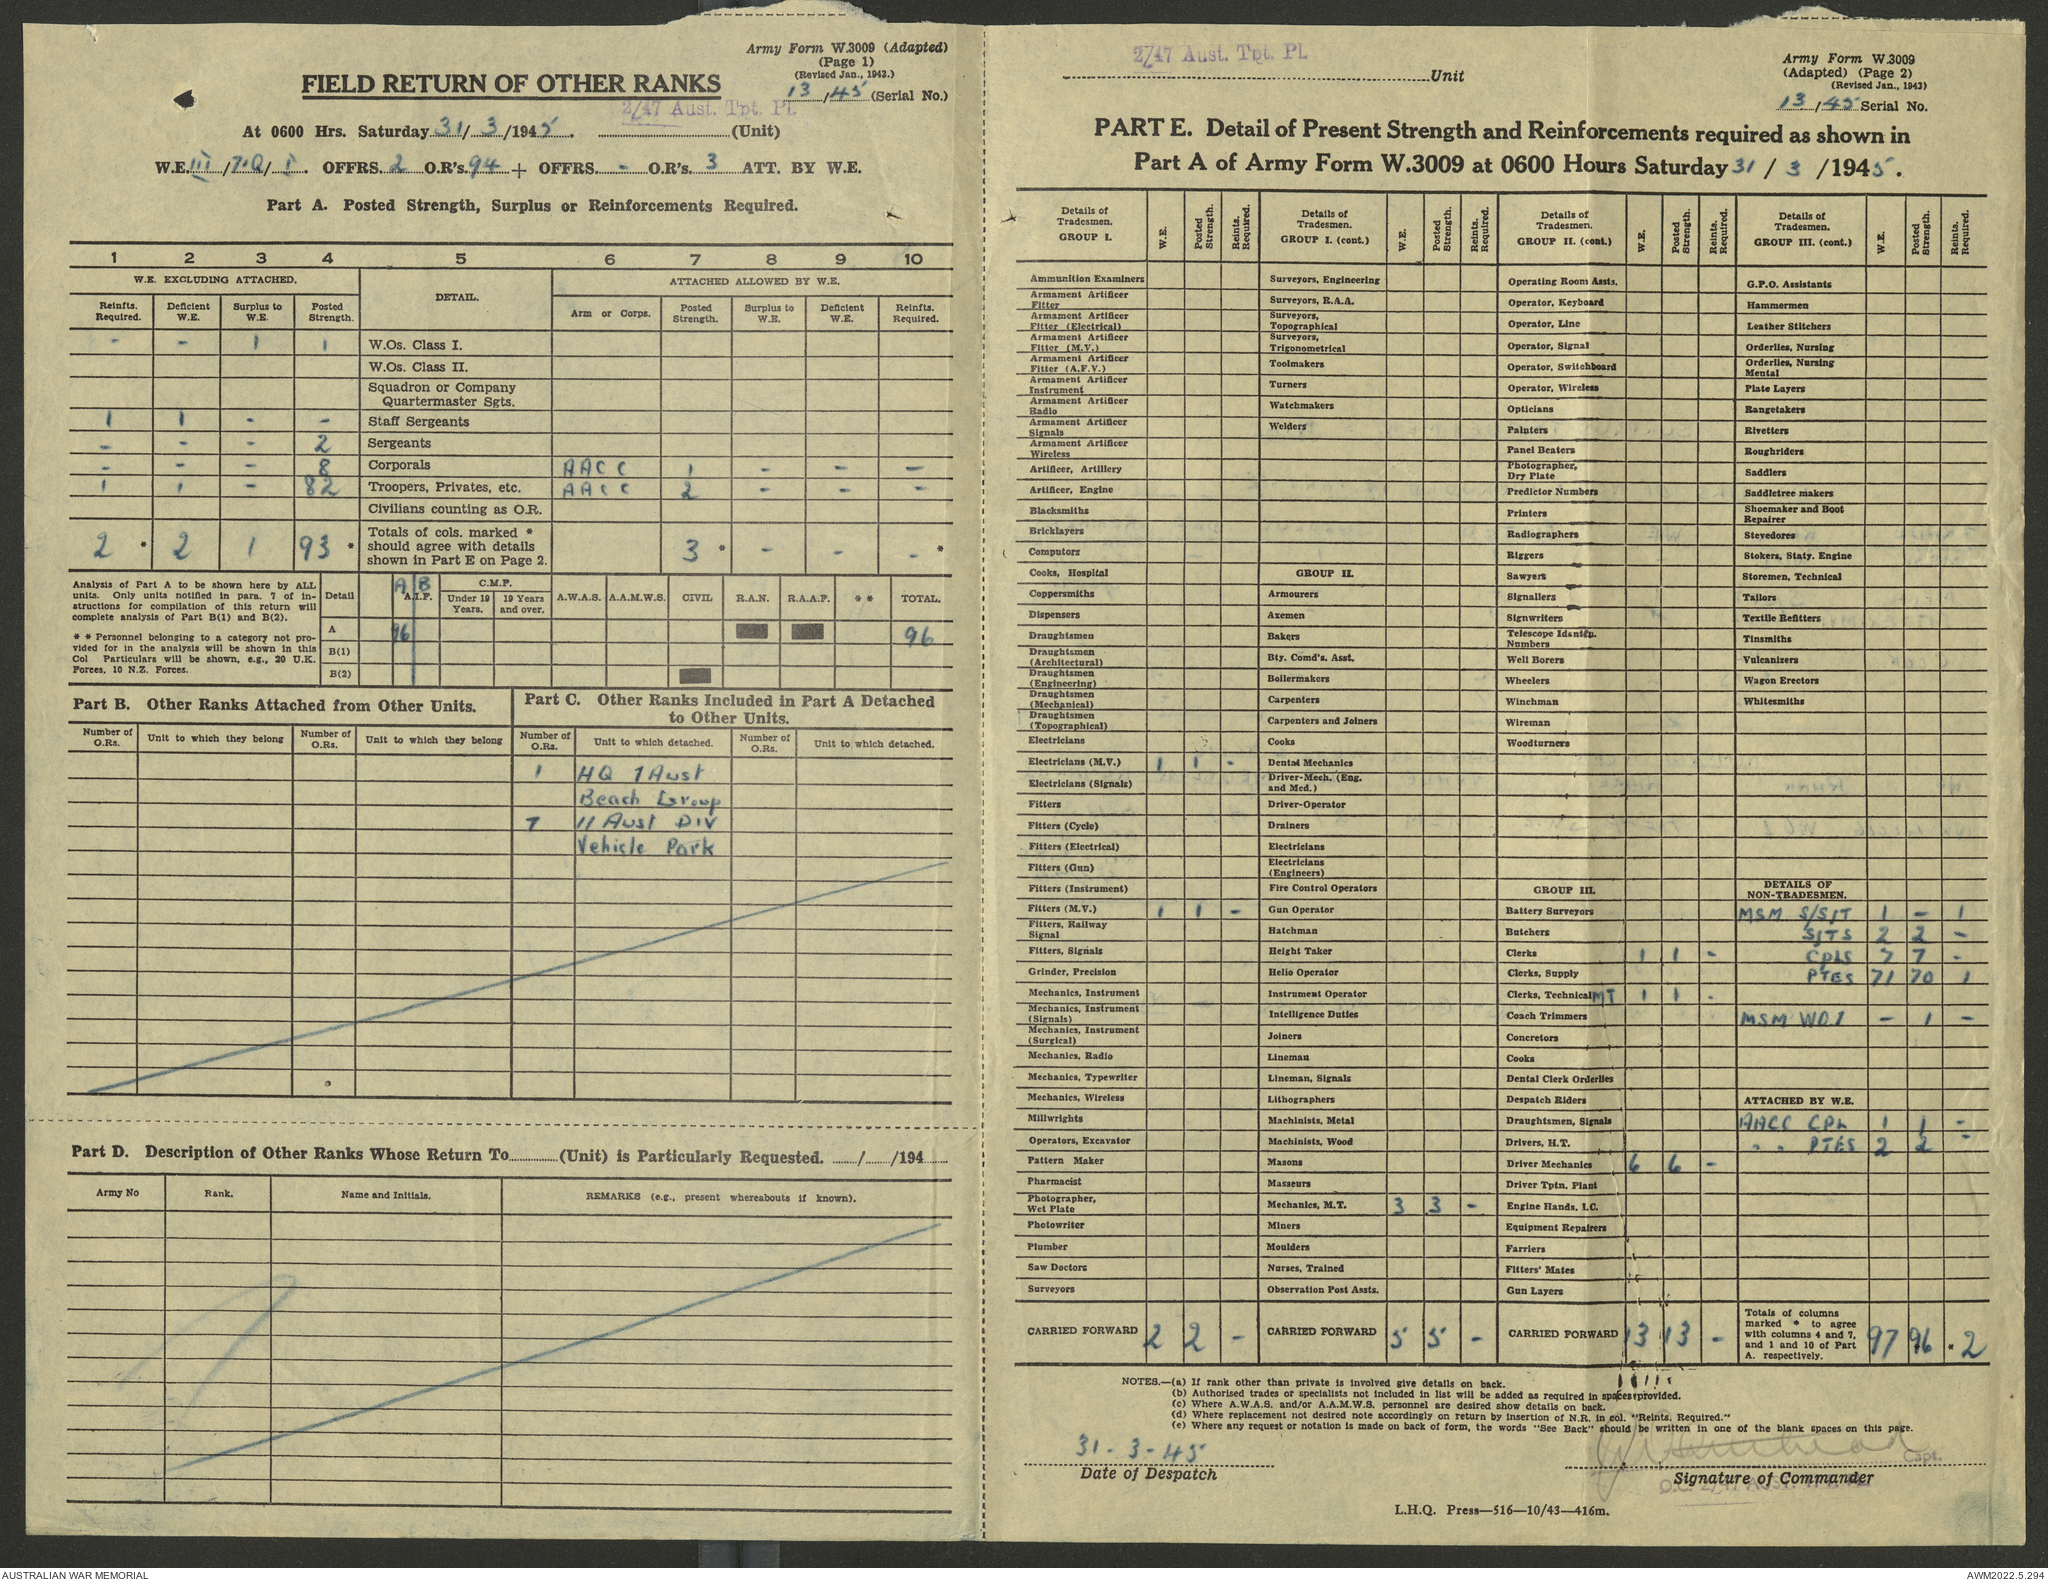 Army Form W.3009 (Adapted)
(Page 1)
(Revised Jan., 1943.)
FIELD RETURN OF OTHER RANKS
13/45 (Serial No.)
2/47 Aust. Tpt. Pl.
At 0600 Hrs. Saturday 31/3/1945. (Unit)
W.E. III/7.Q/I. OFFRS. 2 O.R's. 94 + OFFRS. - O.R's. 3 ATT. BY W.E.
Part A. Posted Strength, Surplus or Reinforcements Required.
1 2 3 4 5 6 7 8 9 10
W.E. EXCLUDING ATTACHED. DETAIL. ATTACHED ALLOWED BY W.E.
Reinfts. Required. Deficient W.E. Surplus to W.E. Posted Strength. Arm or Corps. Posted Strength. Surplus to W.E. Deficient W.E. Reinfts. Required.
- - 1 1 W.Os. Class I.
W.Os. Class II.
Squadron or Company
Quartermaster Sgts.
1 1 - - Staff Sergeants
- - - 2 Sergeants
- - - 8 Corporals AACC 1 - - -
1 1 - 82 Troopers, Privates, etc. AACC 2 - - -
Civilians counting as O.R.
2 * 2 1 93 * Totals of cols. marked * should agree with details shown in Part E on Page 2. 3 * - - - *
Analysis of Part A to be shown here by ALL
units. Only units notified in para. 7 of in-
structions for compilation of this return will
complete analysis of Part B(1) and B(2).
* * Personnel belonging to a category not pro-
vided for in the analysis will be shown in this
Col Particulars will be shown, e.g., 20 U.K.
Forces, 10 N.Z. Forces.
Detail A B A.I.F. C.M.F. Under 19 Years. 19 Years and over. A.W.A.S. A.A.M.W.S. CIVIL R.A.N. R.A.A.F. * * TOTAL.
A 96 96
B(1)
B(2)
Part B. Other Ranks Attached from Other Units.
Part C. Other Ranks Included in Part A Detached
to Other Units.
Number of O.Rs. Unit to which they belong Number of O.Rs. Unit to which they belong Number of O.Rs. Unit to which detached. Number of O.Rs. Unit to which detached.
1 HQ 1 Aust
Beach Group
7 11 Aust DIV
Vehicle Park
Part D. Description of Other Ranks Whose Return To (Unit) is Particularly Requested. / /194
Army No Rank. Name and Initials. REMARKS (e.g., present whereabouts if known).
2/47 Aust. Tpt. Pl.
Unit
Army Form W.3009
(Adapted) (Page 2)
(Revised Jan., 1943)
13/45 Serial No.
PART E. Detail of Present Strength and Reinforcements required as shown in
Part A of Army Form W.3009 at 0600 Hours Saturday 31/3/1945.
Details of Tradesmen. GROUP I. W.E. Posted Strength. Reints. Required.
Ammunition Examiners
Armament Artificer Fitter
Armament Artificer Fitter (Electrical)
Armament Artificer Fitter (M.V.)
Armament Artificer Fitter (A.F.V.)
Armament Artificer Instrument
Armament Artificer Radio
Armament Artificer Signals
Armament Artificer Wireless
Artificer, Artillery
Artificer, Engine
Blacksmiths
Bricklayers
Computors
Cooks, Hospital
Coppersmiths
Dispensers
Draughtsmen
Draughtsmen (Architectural)
Draughtsmen (Engineering)
Draughtsmen (Mechanical)
Draughtsmen (Topographical)
Electricians
Electricians (M.V.) 1 1 -
Electricians (Signals)
Fitters
Fitters (Cycle)
Fitters (Electrical)
Fitters (Gun)
Fitters (Instrument)
Fitters (M.V.) 1 1 -
Fitters, Railway Signal
Fitters, Signals
Grinder, Precision
Mechanics, Instrument
Mechanics, Instrument (Signals)
Mechanics, Instrument (Surgical)
Mechanics, Radio
Mechanics, Typewriter
Mechanics, Wireless
Millwrights
Operators, Excavator
Pattern Maker
Pharmacist
Photographer, Wet Plate
Photowriter
Plumber
Saw Doctors
Surveyors
CARRIED FORWARD 2 2 -
Details of Tradesmen. GROUP I. (cont.) W.E. Posted Strength. Reints. Required.
Surveyors, Engineering
Surveyors, R.A.A.
Surveyors, Topographical
Surveyors, Trigonometrical
Toolmakers
Turners
Watchmakers
Welders
GROUP II.
Armourers
Axemen
Bakers
Bty. Comd's. Asst.
Boilermakers
Carpenters
Carpenters and Joiners
Cooks
Dental Mechanics
Driver-Mech. (Eng. and Med.)
Driver-Operator
Drainers
Electricians
Electricians (Engineers)
Fire Control Operators
Gun Operator
Hatchman
Height Taker
Helio Operator
Instrument Operator
Intelligence Duties
Joiners
Lineman
Lineman, Signals
Lithographers
Machinists, Metal
Machinists, Wood
Masons
Masseurs
Mechanics, M.T. 3 3 -
Miners
Moulders
Nurses, Trained
Observation Post Assts.
CARRIED FORWARD 5 5 -
Details of Tradesmen. GROUP II. (cont.) W.E. Posted Strength. Reints. Required.
Operating Room Assts.
Operator, Keyboard
Operator, Line
Operator, Signal
Operator, Switchboard
Operator, Wireless
Opticians
Painters
Panel Beaters
Photographer, Dry Plate
Predictor Numbers
Printers
Radiographers
Riggers
Sawyers
Signallers
Signwriters
Telescope Identn. Numbers
Well Borers
Wheelers
Winchman
Wireman
Woodturners
GROUP III.
Battery Surveyors
Butchers
Clerks 1 1 -
Clerks, Supply
Clerks, Technical MT 1 1 -
Coach Trimmers
Concretors
Cooks
Dental Clerk Orderlies
Despatch Riders
Draughtsmen, Signals
Drivers, H.T.
Driver Mechanics 6 6 -
Driver Tptn. Plant
Engine Hands, I.C.
Equipment Repairers
Farriers
Fitters' Mates
Gun Layers
CARRIED FORWARD 13 13 -
Details of Tradesmen. GROUP III. (cont.) W.E. Posted Strength. Reints. Required.
G.P.O. Assistants
Hammermen
Leather Stitchers
Orderlies, Nursing
Orderlies, Nursing Mental
Plate Layers
Rangetakers
Rivetters
Roughriders
Saddlers
Saddletree makers
Shoemaker and Boot Repairer
Stevedores
Stokers, Staty. Engine
Storemen, Technical
Tailors
Textile Refitters
Tinsmiths
Vulcanizers
Wagon Erectors
Whitesmiths
DETAILS OF NON-TRADESMEN.
MSM S/SJT 1 - 1
SJTS 2 2 -
CPLS 7 7 -
PTES 71 70 1
MSM WO1 - 1 -
ATTACHED BY W.E.
AACC CPL 1 1 -
" " PTES 2 2 -
Totals of columns marked * to agree with columns 4 and 7, and 1 and 10 of Part A. respectively. 97 96 * 2
NOTES.—(a) If rank other than private is involved give details on back.
(b) Authorised trades or specialists not included in list will be added as required in spaces provided.
(c) Where A.W.A.S. and/or A.A.M.W.S. personnel are desired show details on back.
(d) Where replacement not desired note accordingly on return by insertion of N.R. in col. "Reints. Required."
(e) Where any request or notation is made on back of form, the words "See Back" should be written in one of the blank spaces on this page.
31-3-45
Date of Despatch
Capt.
Signature of Commander
L.H.Q. Press—516—10/43—416m.
AUSTRALIAN WAR MEMORIAL
AWM2022.5.294